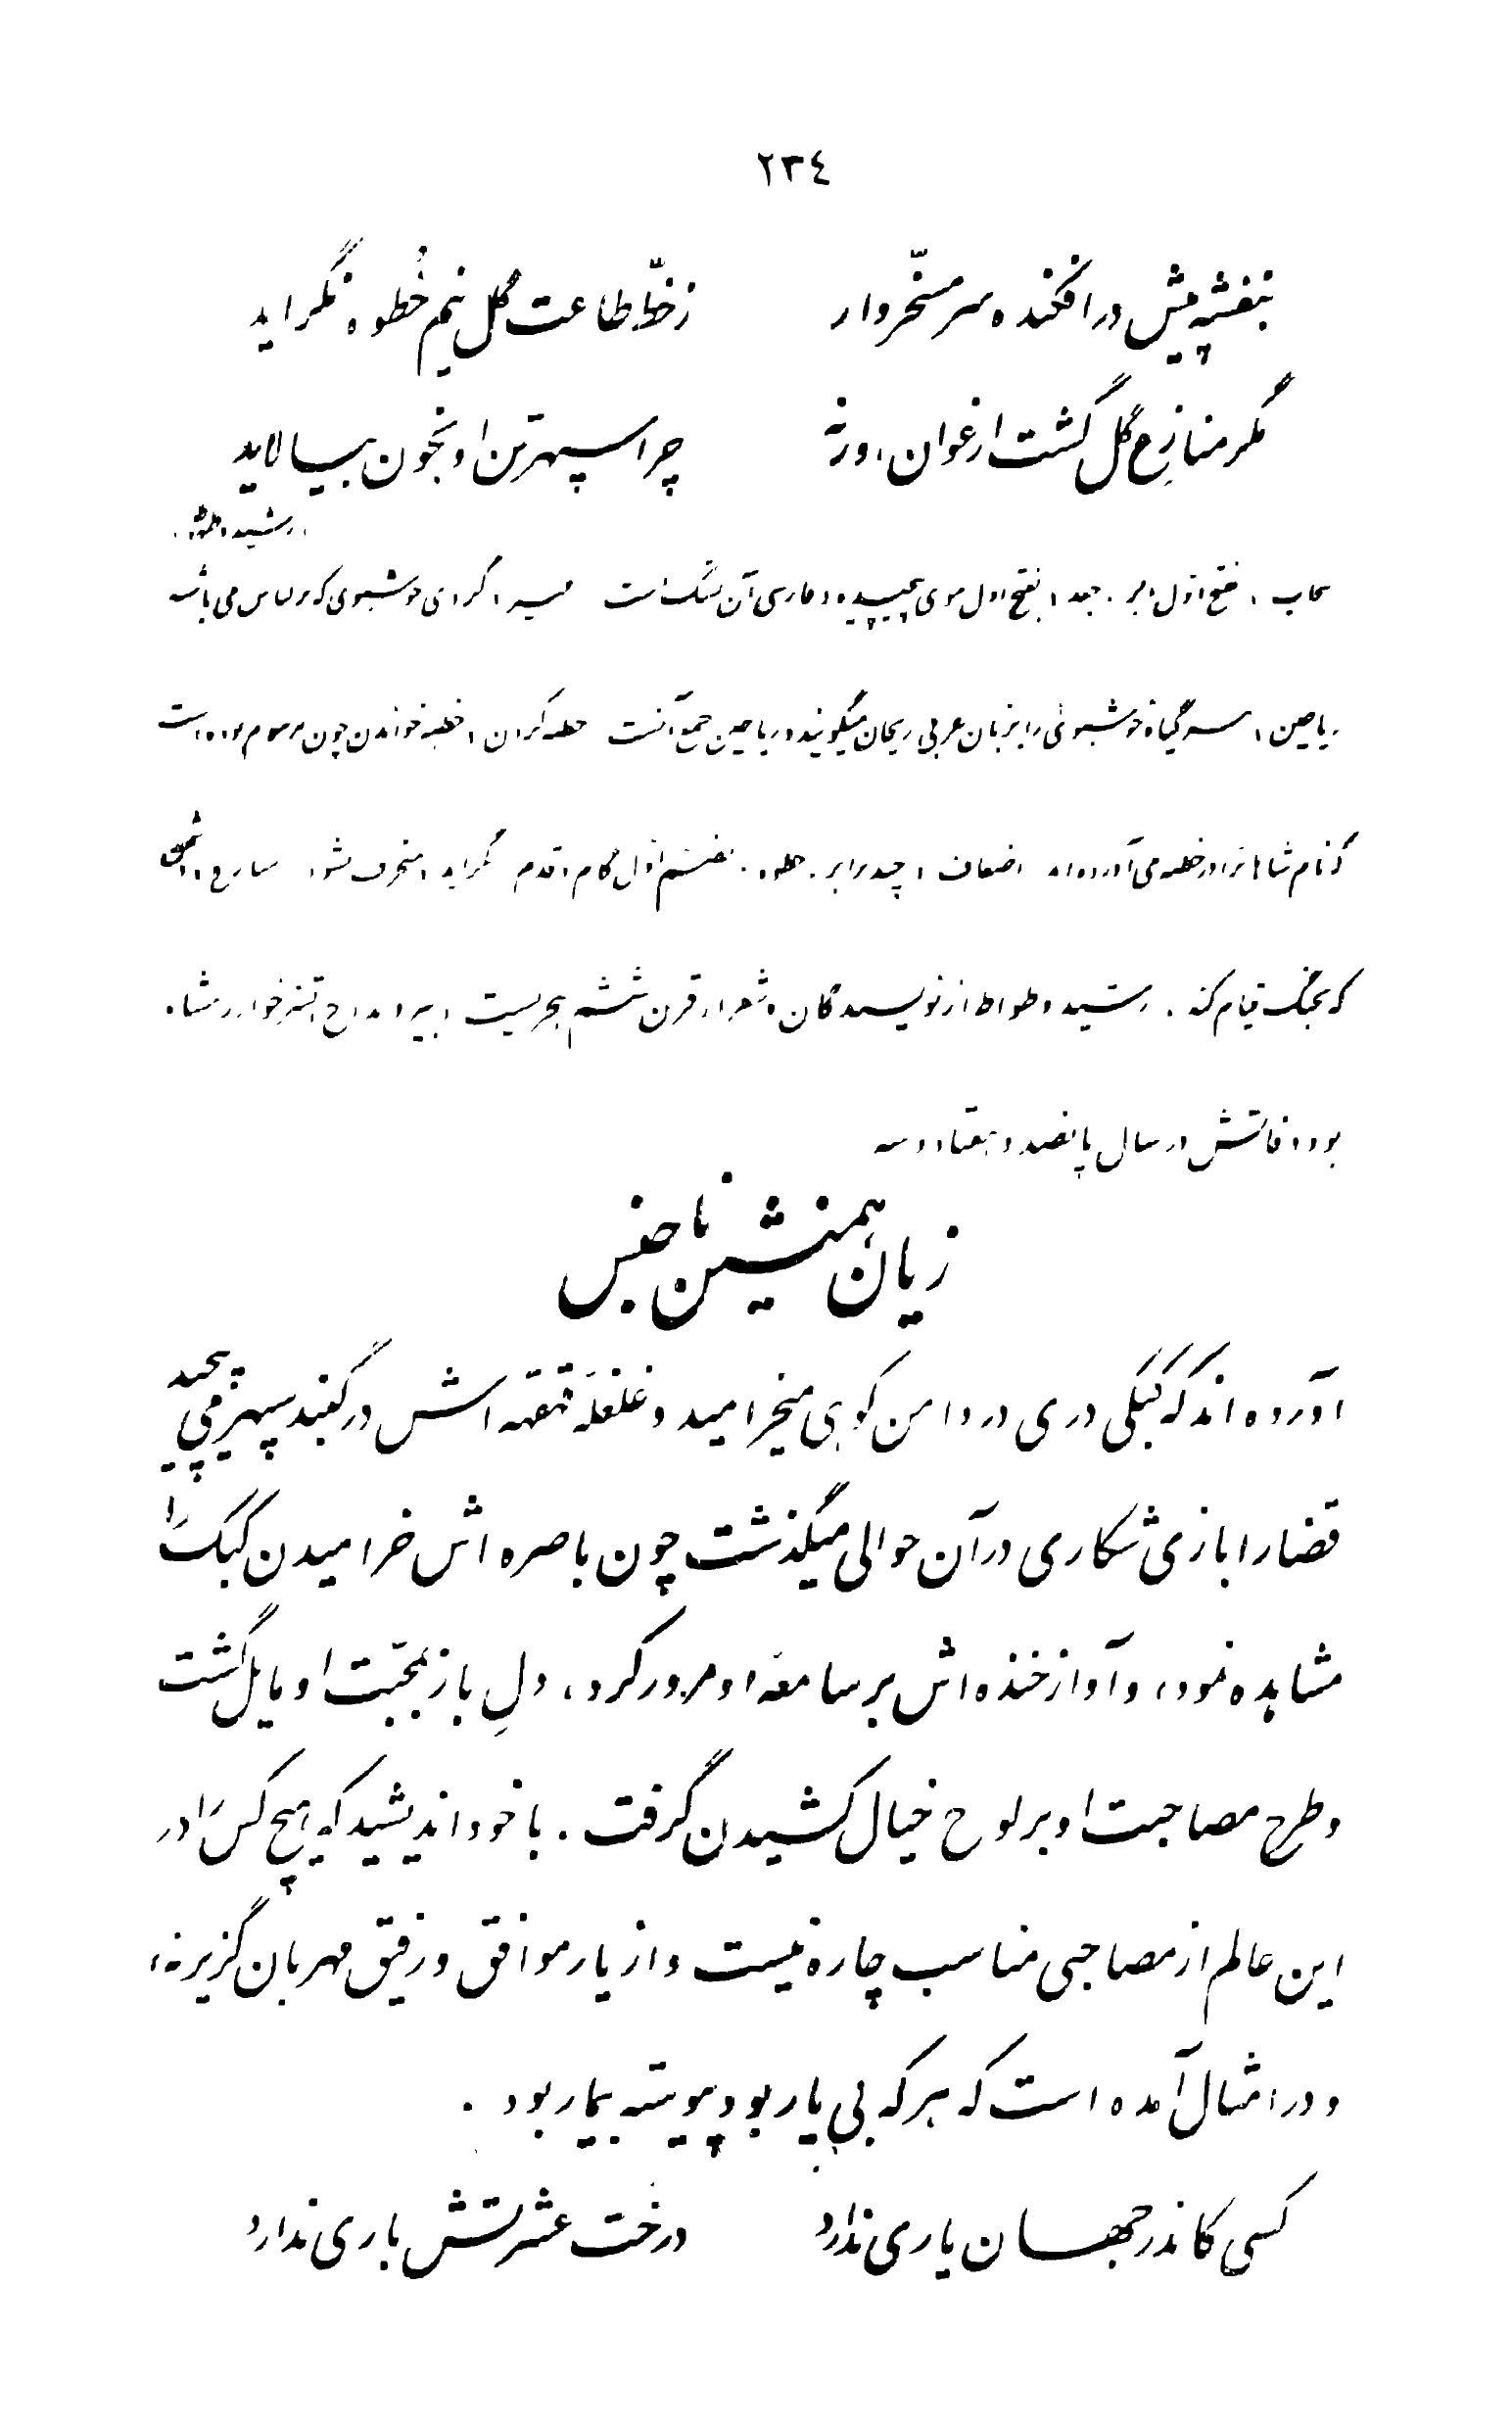 ۲۳٤
بنفشه پیش در افکنده سر مسخّروار    ز خطّ طاعت گل نیم خُطوه نگراید
مگر منازِع گل گشت ارغوان، ورنه    چرا سپهر تن او بخون بیالاید
رشید وطواط
سحاب، بفتح اول ابر. جعد، بفتح اول موی پیچیده و فارسی آن شنگ است عبیر، گردی خوشبوی که بر لباس می پاشند
ریاحین، هر گیاه خوشبوئی را بزبان عربی ریحان میگویند و ریاحین جمع آنست خطبه کردن، خطبه خواندن چون مرسوم بوده است
که نام شاهانرا در خطبه می آورده اند اضعاف، چند برابر. خطوه. بضم اول گام، قدم نگراید، منحرف نشود منازع، دشمن
که بجنگ قیام کند. رشید وطواط از نویسندگان و شعراء قرن ششم هجریست دبیر و مداح اتسز خوارزمشاه
بود وفاتش در سال پانصد و هفتاد و سه
زیان همنشین ناجنس
آورده اند که کبکی دری در دامن کوهی میخرامید و غلغلهٔ قهقهه اش در گنبد سپهر می پیچید
قضا را بازی شکاری در آن حوالی میگذشت چون باصره اش خرامیدن کبک را
مشاهده نمود، و آواز خنده اش بر سامعهٔ او مرور کرد، دلِ باز بمحبّت او مایل گشت
و طرح مصاحبت او بر لوح خیال کشیدن گرفت. با خود اندیشید که هیچکس را در
این عالم از مصاحبی مناسب چاره نیست و از یار موافق و رفیق مهربان گزیر نه،
و در امثال آمده است که هر که بی یار بود پیوسته بیمار بود.
کسی کاندر جهان یاری ندارد    درخت عشرتش باری ندارد